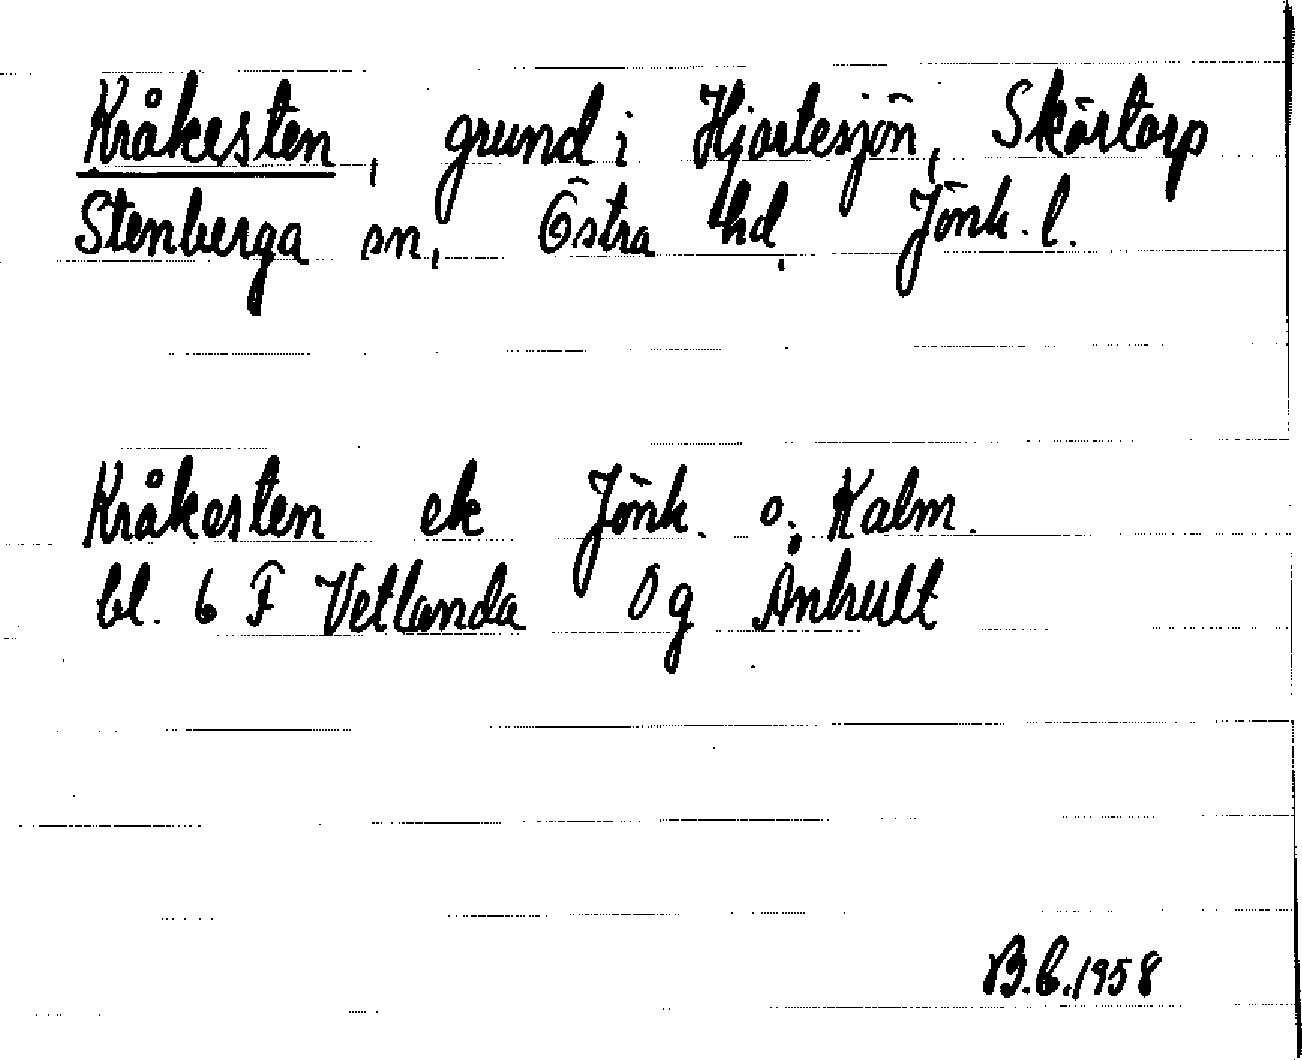 Kråkesten, grund i Hjortesjön, Skärtorp
Stenberga sn, Östra hd, Jönk. l.
Kråkesten ek Jönk. o. Kalm.
bl. 6 F Vetlanda 0 g Ånhult
B.C. 1958